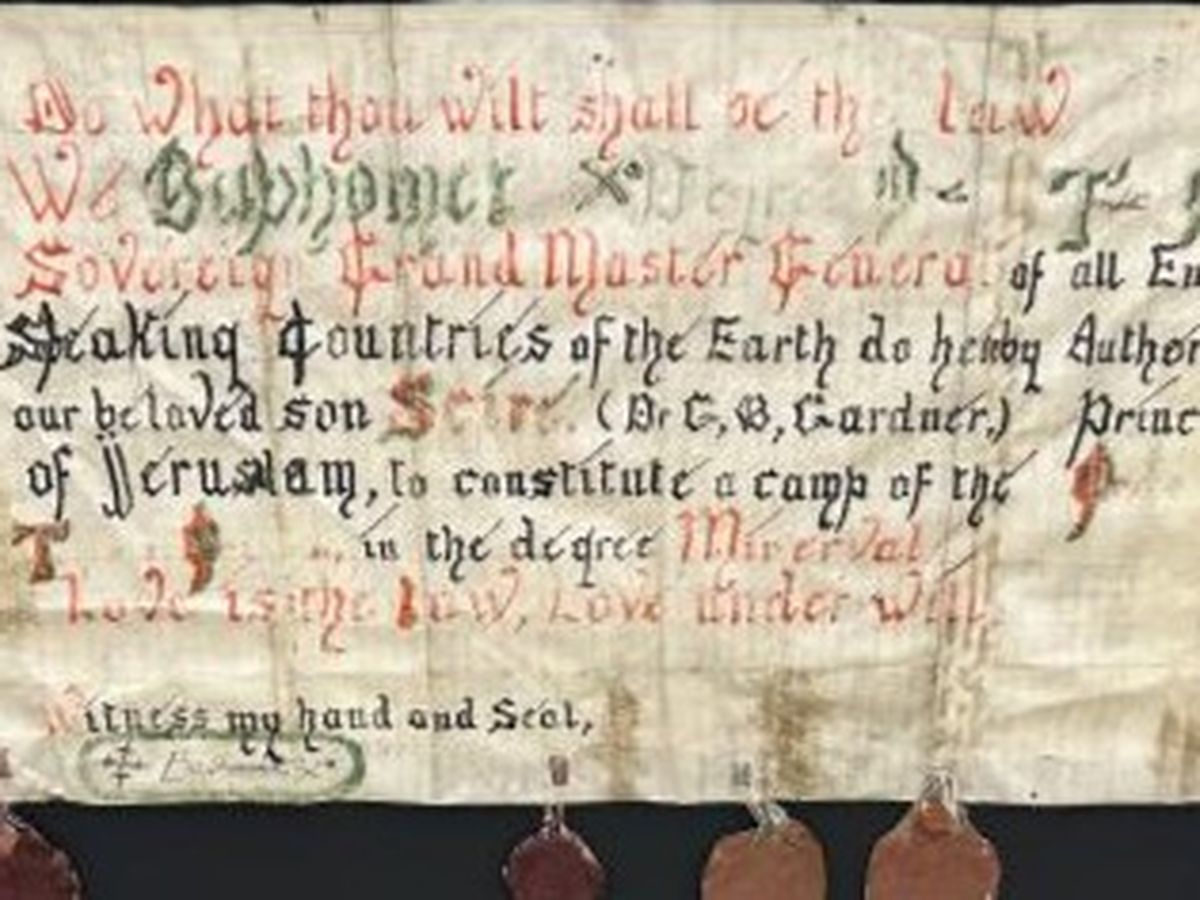 Do what thou wilt shall be th law
We Baphomet X°
Sovereign Grand Master General of all En
Speaking Countries of the Earth do hereby Author
our beloved son Scire. (Dr G, B, Gardner,) Princ
of Jerusalam, to constitute a camp of the
T in the degree Minerval
Love is the law, Love under will.
Witness my hand and Seal,